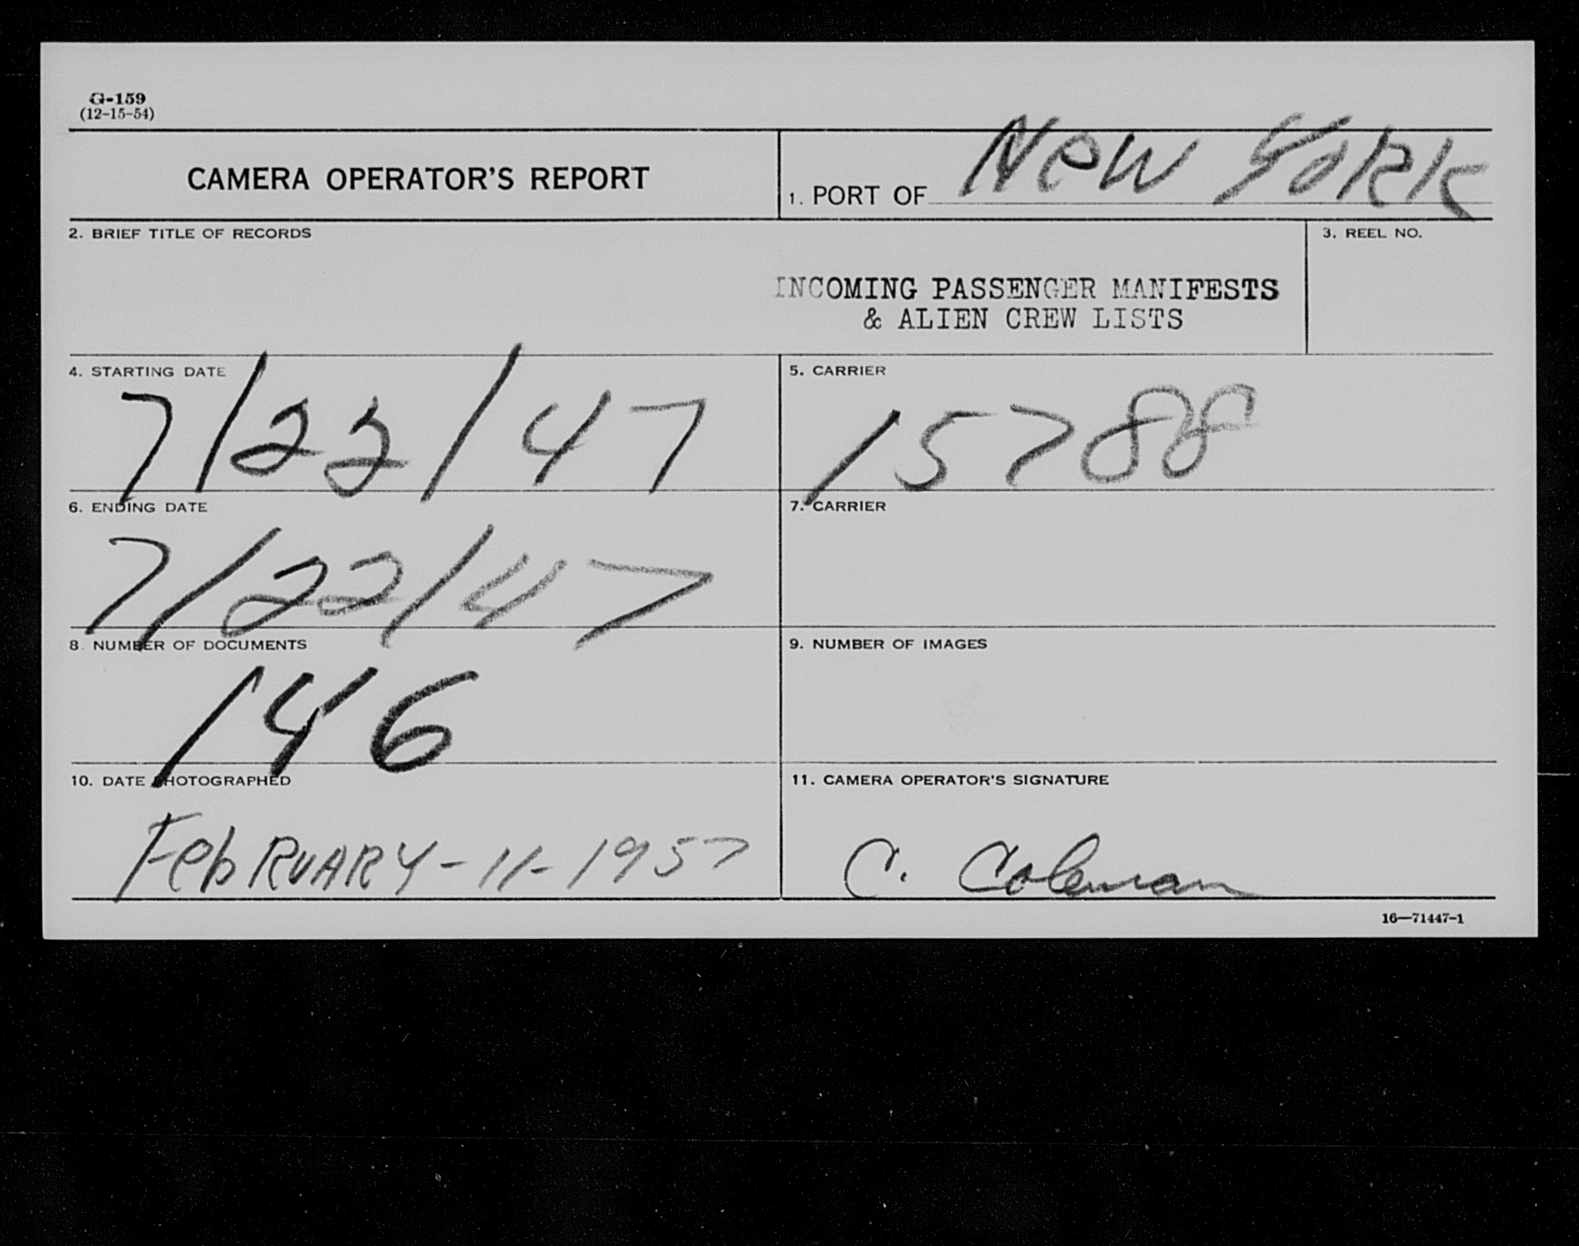 G-159
(12-15-54)
CAMERA OPERATOR'S REPORT
1. PORT OF New York
2. BRIEF TITLE OF RECORDS
INCOMING PASSENGER MANIFESTS
& ALIEN CREW LISTS
3. REEL NO.
4. STARTING DATE
7/22/47
5. CARRIER
15788
6. ENDING DATE
7/22/47
7. CARRIER
8 NUMBER OF DOCUMENTS
146
9. NUMBER OF IMAGES
10. DATE PHOTOGRAPHED
FebRUARY-11-1957
11. CAMERA OPERATOR'S SIGNATURE
C. Coleman
16—71447-1